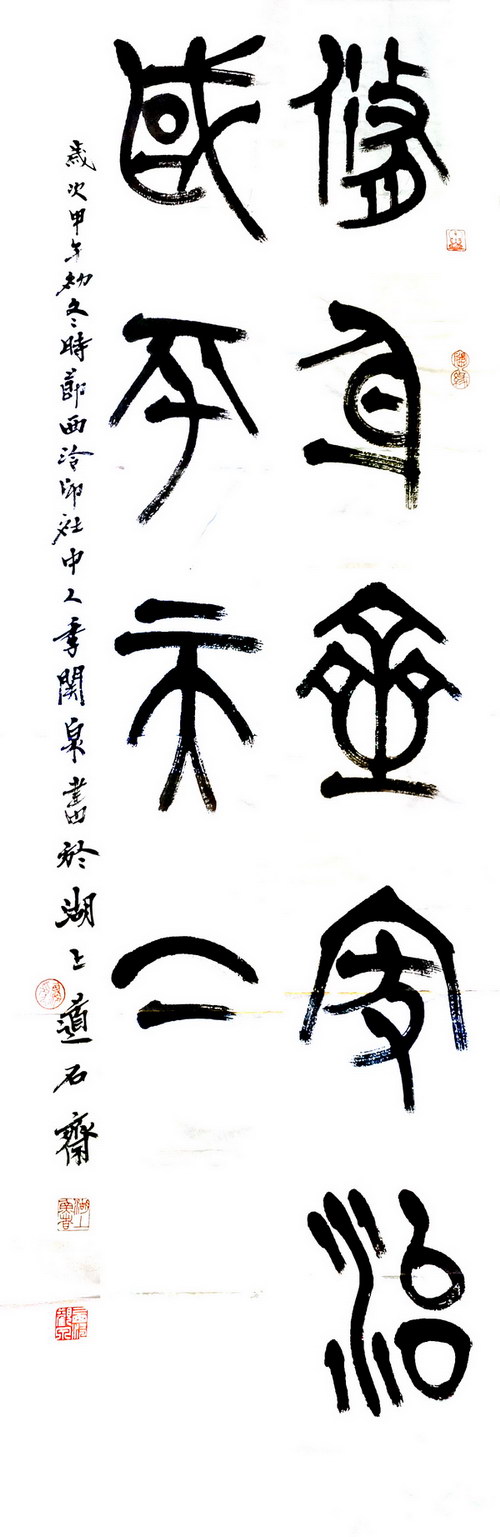 修身齊家治
國平天下
歲次甲午初冬時節西泠印社中人季關泉書於湖上道石齋